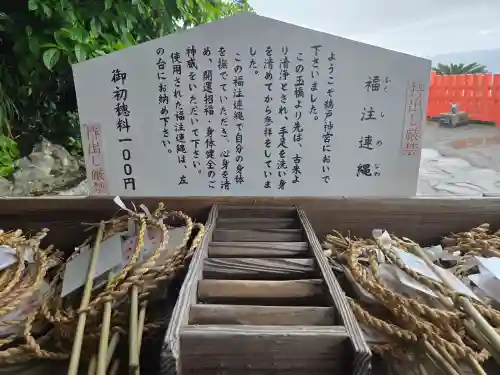 持出し厳禁
ふくしめなわ
福注連縄
ようこそ鵜戸神宮においで
下さいました。
この玉橋より先は、古来よ
り清浄とされ、手足を洗い身
を清めてから参拝をしていま
した。
この福注連縄で自分の身体
を撫でていただき、心身を清
め、開運招福・身体健全のご
神徳を戴いて下さい。
使用された福注連縄は、左
の台にお納め下さい。
御初穂料 100円
持出し厳禁